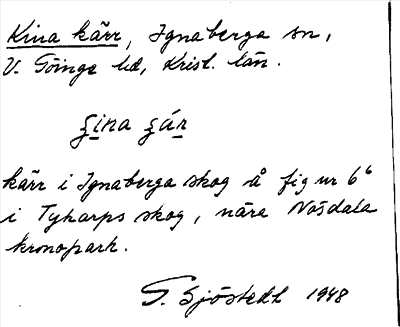 Kina kärr, Ignaberga sn,
V. Göinge hd, Krist. län.
kärr i Ignaberga skog å fig ur 6⁶
i Tykarps skog, nära Nosdala
kronopark.
G. Sjöstedt 1948